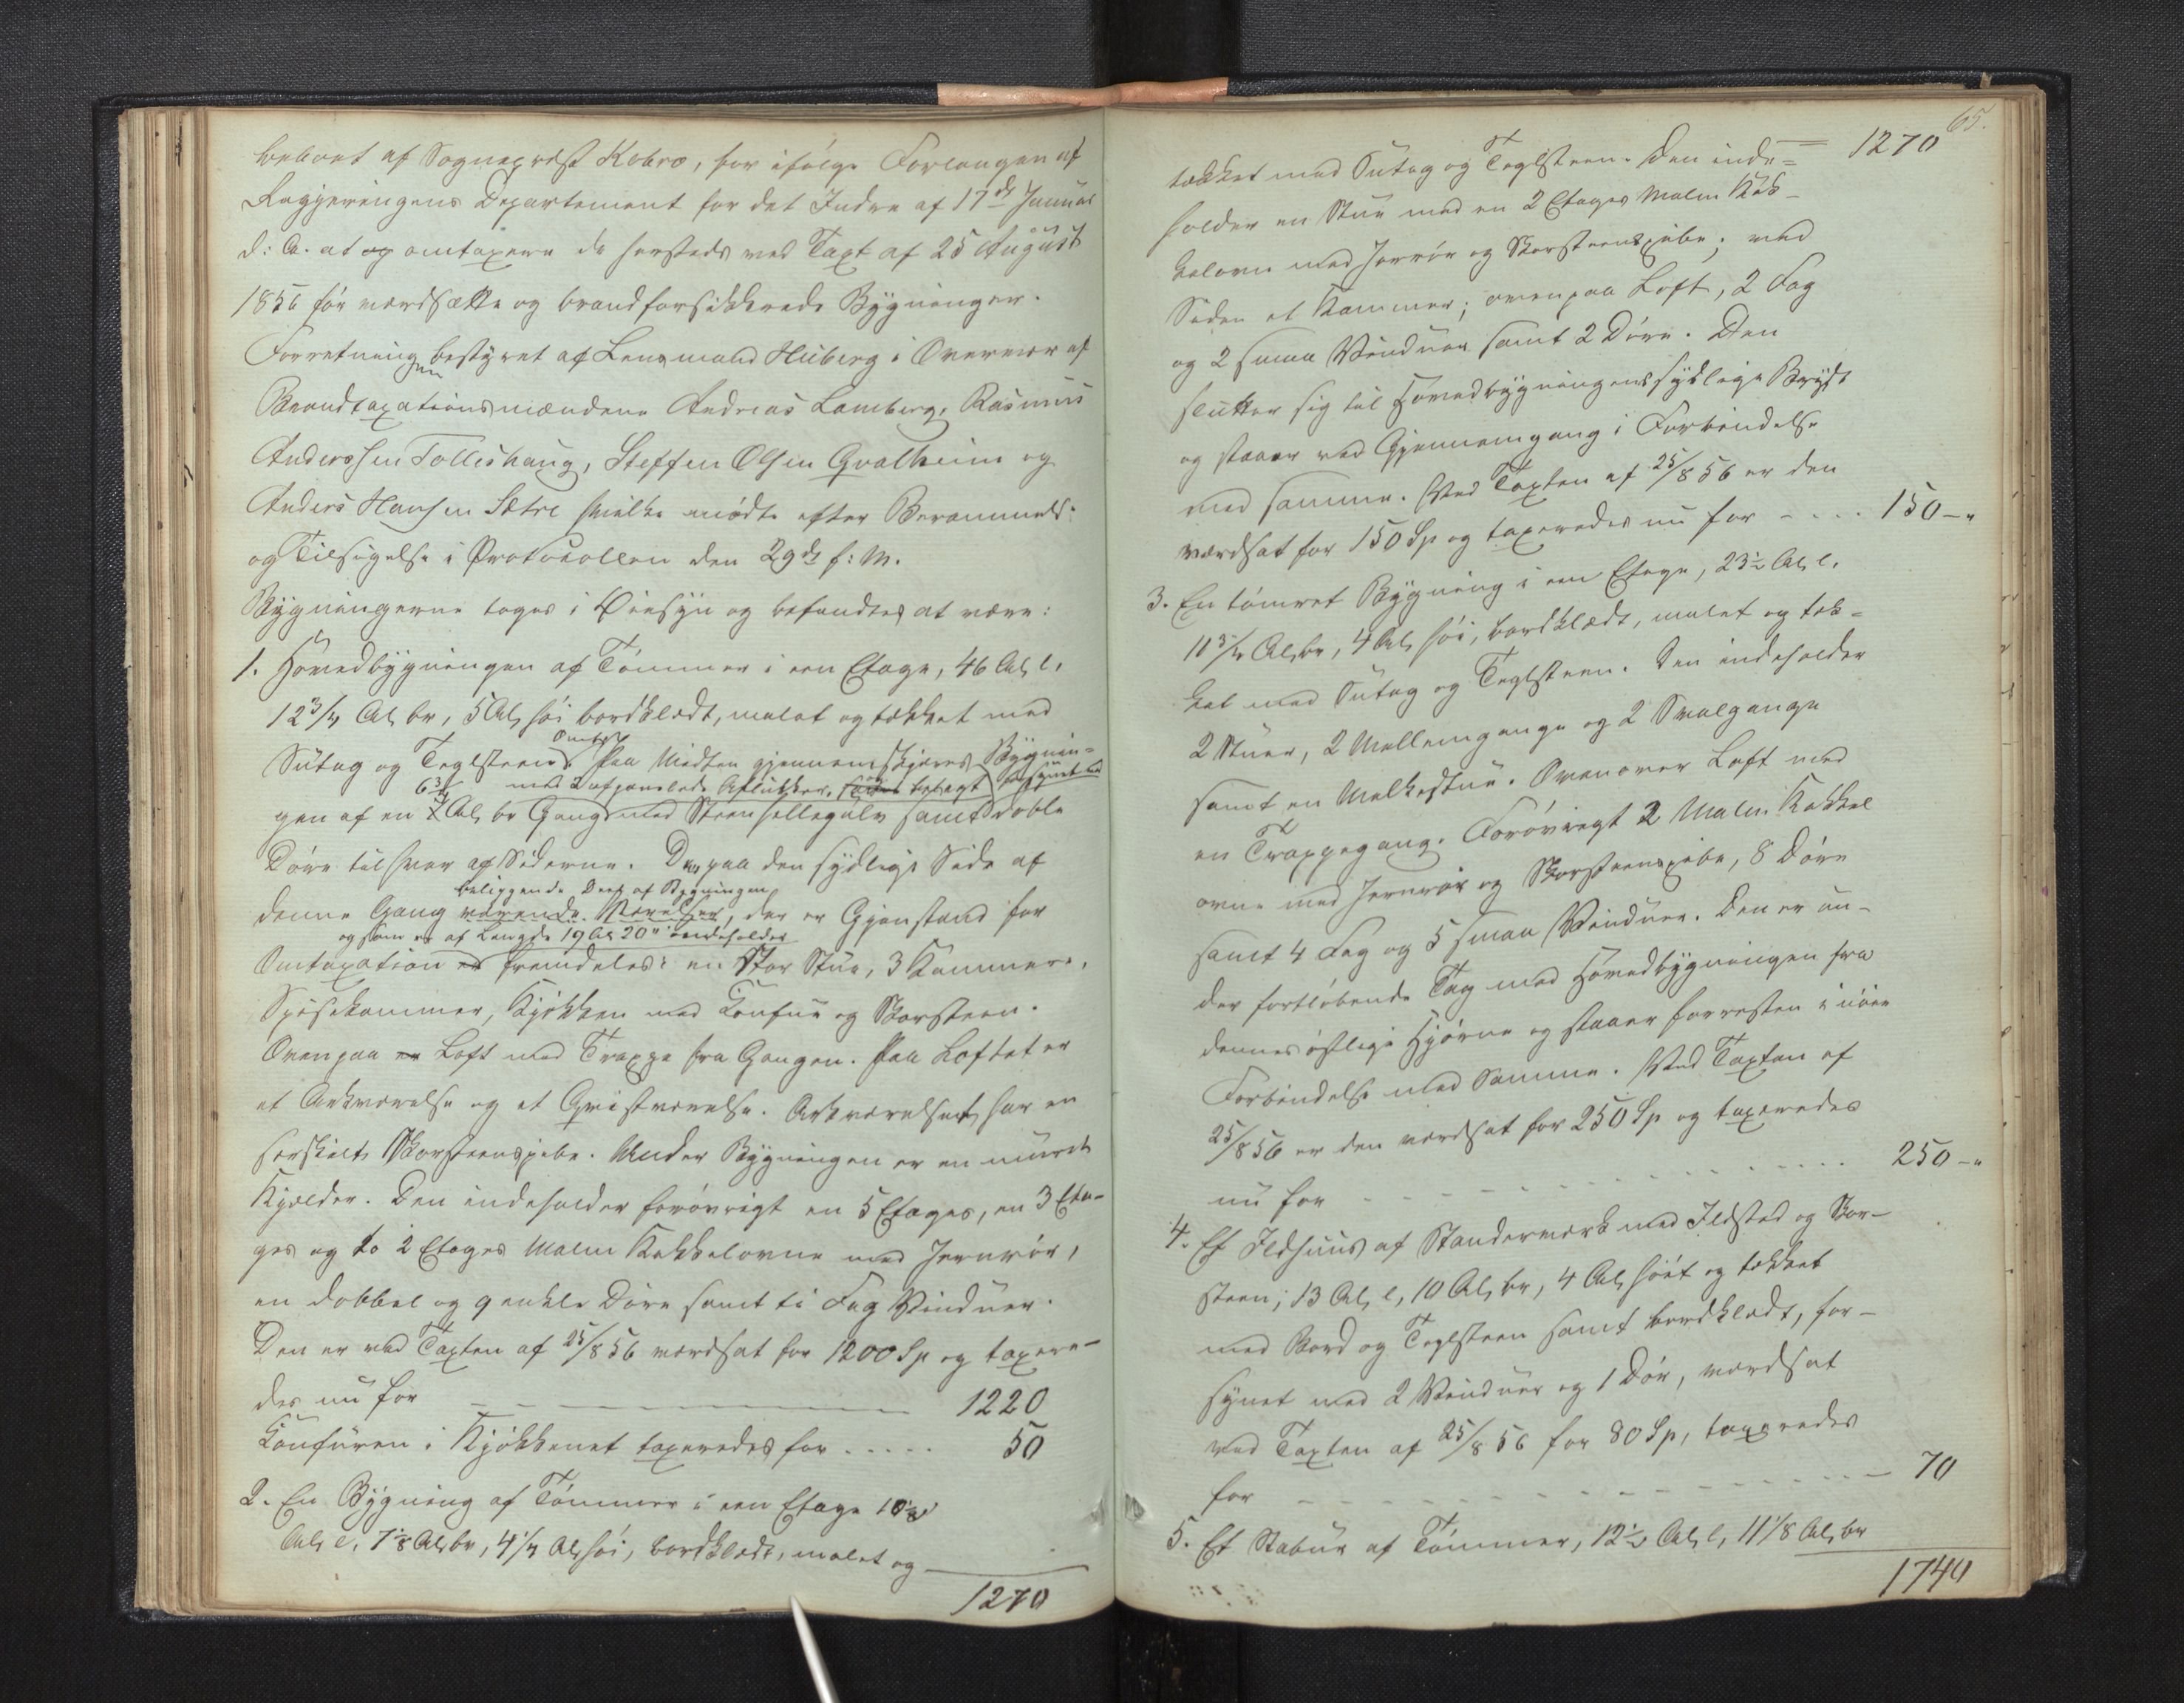 beboet af Sogneprest Kobro, for ifølge Forlangen af
Regjeringens Departement for det Indre af 17de Januar
d: A. at op omtaxere de hersteds ved Taxt af 25 August
1856 før værdsatte og brandforsikkrede Bygninger.
Forretningen bestyret af Lensmand Huberg i Overvær af
Brandtaxationsmændene Andreas Lamberg, Rasmus
Anderssen Tolleshaug, Steffen Olsen Qvalheim og
Anders Hansen Sætre hvilke mødte efter Berammelse
og Tilsigelse i Protocollen den 29de f: M.
Bygningerne toges i Øiesyn og befandtes at være:
1. Hovedbygningen af Tømmer i een Etage, 46 Al. l.
12 3/4 Al. br, 5 Al. høi bordklædt, malet og tækket med
Sutag og Teglsteen. Paa Midten gjennemskjæres Bygnin-
med 2 afpanelede Aflukker,
gen af en 6 3/4 Al. br Gang med Steenhellegulv samt doble
Døre til hver af Siderne. Den paa den sydlige Side af
beliggende Deel af Bygningen
denne Gang værende Værelser, der er Gjenstand for
og som er af Længde 19 Al. 20" indeholder
Omtaxation er fremdeles: en Stor Stue, 3 Kammere,
Spisekammer, Kjøkken med Konfur og Skorsteen.
Ovenpaa er Loft med Trappe fra Gangen. Paa Loftet er
et Arkværelse og et Qvistværelse. Arkværelset har en
særskilt Skorsteenspibe. Under Bygningen er en muret
Kjelder. Den indeholder forøvrigt en 5 Etages, en 3 Eta-
ges og to 2 Etages Malm Kakkelovne med Jernrør,
en dobbel og 9 enkle Døre samt ti Fag Vinduer.
Den er ved Taxten af 25/8 56 værdsat for 1200 Sp og taxere-
des nu for 1220
Konfuren i Kjøkkenet taxeredes for 50
2. En Bygning af Tømmer i een Etage 10 1/2
Al. l, 7 1/8 Al. br, 4 1/4 Al. høi, bordklædt, malet og
1270
65.
1270
tækket med Sutag og Teglsteen. Den inde-
holder en Stue med en 2 Etages Malm Kak-
kelovn med Jernrør og Skorsteenspibe; ved
Siden et Kammer; ovenpaa Loft, 2 Fag
og 2 smaa Vinduer samt 2 Døre. Den
slutter sig til Hovedbygningens sydlige
og staaer ved Gjennemgang i Forbindelse
med samme. Ved Taxten af 25/8 56 er den
værdsat for 150 Sp og taxeredes nu for 150 - "
3. En tømret Bygning i een Etage, 23 1/2 Al. l.
11 3/4 Al. br, 4 Al. høi, bordklædt, malet og tæk-
ket med Sutag og Teglsteen. Den indeholder
2 Stuer, 2 Mellemgange og 2 Svalgange
samt en Melkestue. Ovenover Loft med
en Trappegang. Forøvrigt 2 Malm Kakkel
ovne med Jernrør og Skorsteenspibe, 8 Døre
samt 4 Fag og 5 smaa Vinduer. Den er un-
der fortløbende Tag med Hovedbygningen fra
dennes østlige Hjørne og staaer forresten i nøie
Forbindelse med Samme. Ved Taxten af
25/8 56 er den værdsat for 250 Sp og taxeredes
nu for 250 - "
4. Et Ildhuus af Standerværk med Ildsted og Skor-
steen; 13 Al. l, 10 Al. br, 4 Al. høit og tækket
med Bord og Teglsteen samt bordklædt, for-
synet med 2 Vinduer og 1 Dør, værdsat
ved Taxten af 25/8 56 for 80 Sp, taxeredes
for 70
5. Et Stabur af Tømmer, 12 1/2 Al. l, 11 1/8 Al. br
1740